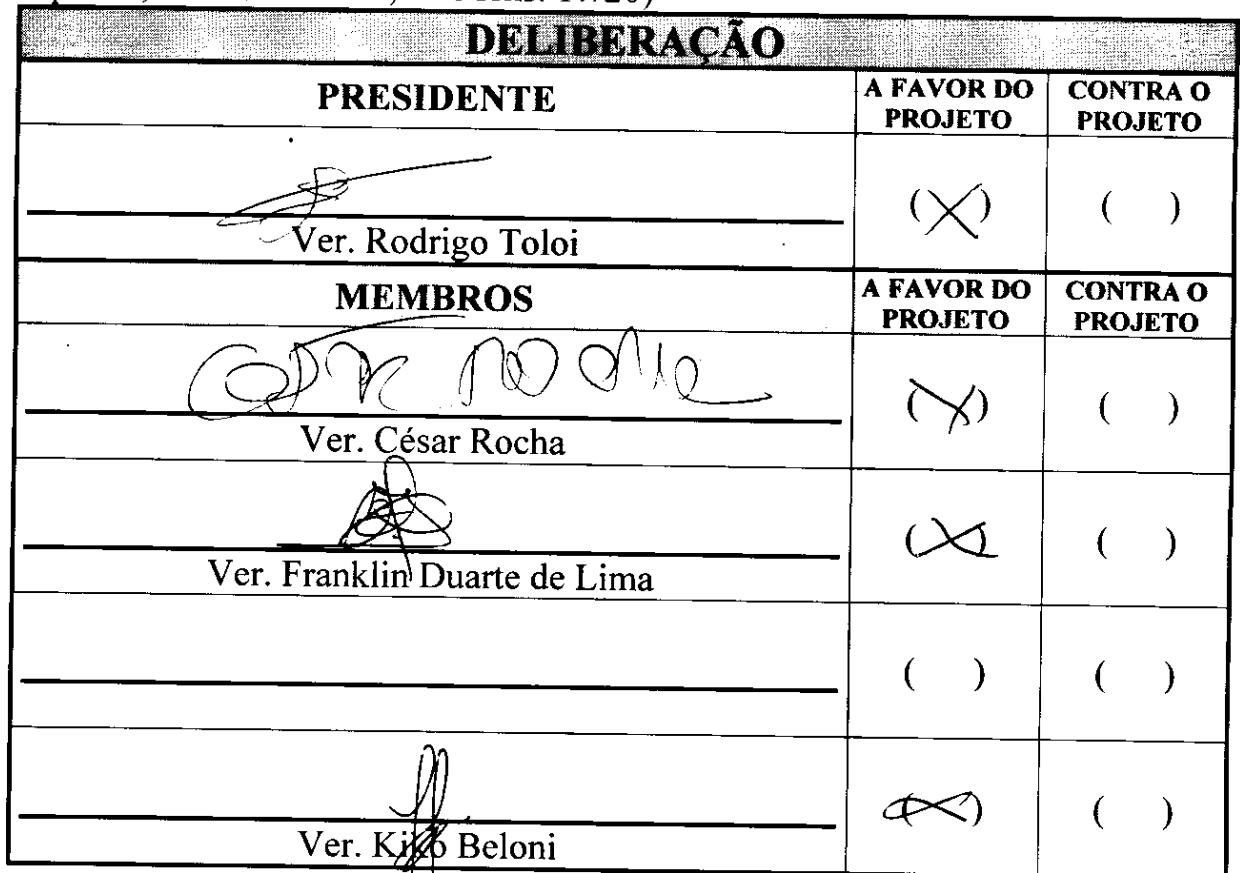 DELIBERAÇÃO
PRESIDENTE
A FAVOR DO PROJETO
CONTRA O PROJETO
(X)
( )
Ver. Rodrigo Toloi
MEMBROS
A FAVOR DO PROJETO
CONTRA O PROJETO
(X)
( )
Ver. César Rocha
(X)
( )
Ver. Franklin Duarte de Lima
( )
( )
(X)
( )
Ver. Kiko Beloni